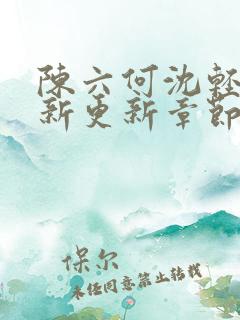 陳六何沈輕
新更新章節
保尔
未任同意禁止转载